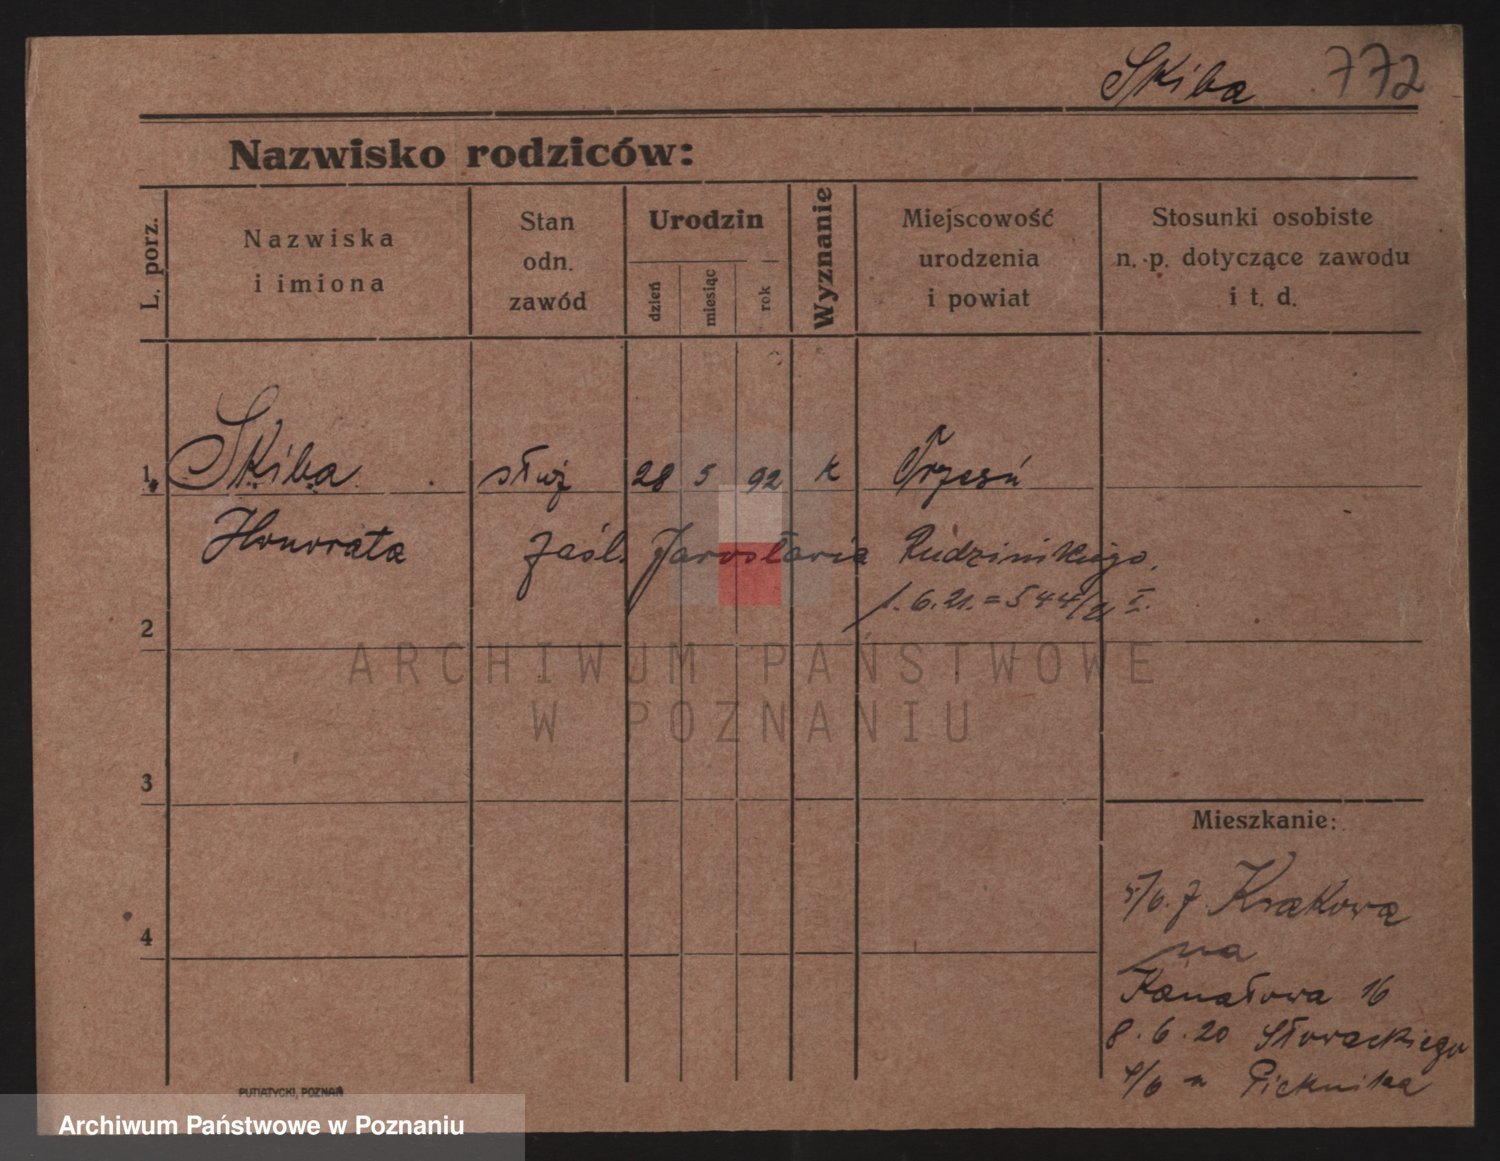 Skiba 772
Nazwisko rodziców:
L. porz.
Nazwiska
i imiona
Stan
odn.
zawód
Urodzin
dzień
miesiąc
rok
Wyznanie
Miejscowość
urodzenia
i powiat
Stosunki osobiste
n. p. dotyczące zawodu
i t. d.
1. Skiba służ 28 5 92 k Trzesń
Honorata zaśl. Jarosława Rudzińskiego.
1.6.21. = 544/21 I.
2
ARCHIWUM PAŃSTWOWE
W POZNANIU
3
Mieszkanie:
4
Krakowa
na
Kanałowa 16
8.6.20 Słowackiego
PUTIATYCKI, POZNAŃ
Archiwum Państwowe w Poznaniu